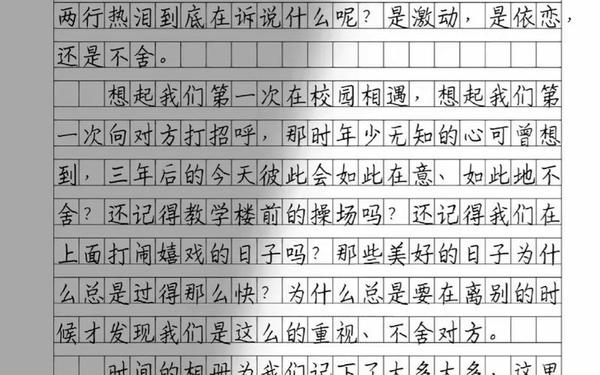 两行热泪到底在诉说什么呢？是激动，是依恋，
还是不舍。
想起我们第一次在校园相遇，想起我们第
一次向对方打招呼，那时年少无知的心可曾想
到，三年后的今天彼此会如此在意、如此地不
舍？还记得教学楼前的操场吗？还记得我们在
上面打闹嬉戏的日子吗？那些美好的日子为什
么总是过得那么快？为什么总是要在离别的时
候才发现我们是这么的重视、不舍对方。
时间的相册为我们记下了太多太多，这里